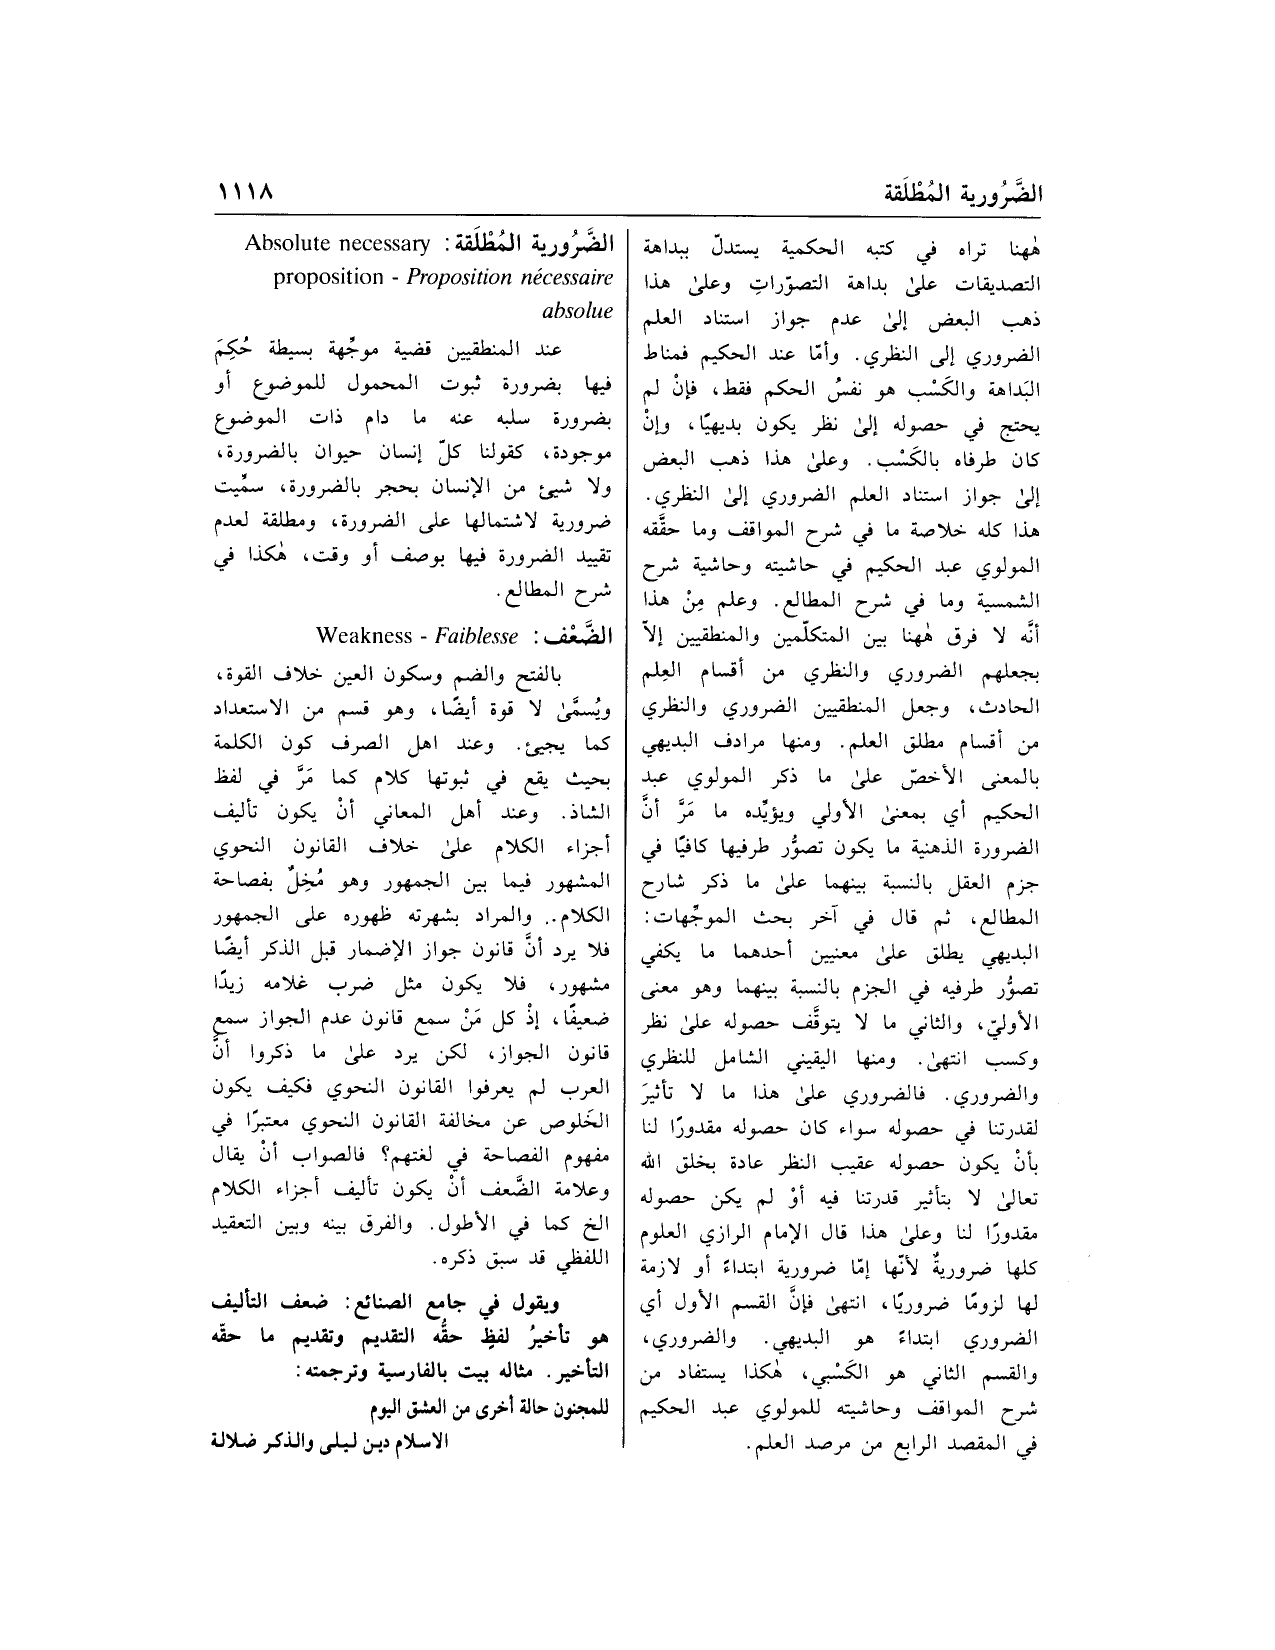 الضَّرُورية المُطْلَقة
١١١٨
هٰهنا تراه في كتبه الحكمية يستدلّ ببداهة
التصديقات علىٰ بداهة التصوّراتِ وعلىٰ هذا
ذهب البعض إلىٰ عدم جواز استناد العلم
الضروري إلى النظري. وأمّا عند الحكيم فمناط
البَداهة والكَسْب هو نفسُ الحكم فقط، فإنْ لم
يحتج في حصوله إلىٰ نظر يكون بديهيًا، وإنْ
كان طرفاه بالكَسْب. وعلىٰ هذا ذهب البعض
إلىٰ جواز استناد العلم الضروري إلىٰ النظري.
هذا كله خلاصة ما في شرح المواقف وما حقَّقه
المولوي عبد الحكيم في حاشيته وحاشية شرح
الشمسية وما في شرح المطالع. وعلم مِنْ هذا
أنَّه لا فرق هٰهنا بين المتكلّمين والمنطقيين إلاّ
بجعلهم الضروري والنظري من أقسام العِلم
الحادث، وجعل المنطقيين الضروري والنظري
من أقسام مطلق العلم. ومنها مرادف البديهي
بالمعنى الأخصّ علىٰ ما ذكر المولوي عبد
الحكيم أي بمعنىٰ الأولي ويؤيِّده ما مَرَّ أنَّ
الضرورة الذهنية ما يكون تصوُّر طرفيها كافيًا في
جزم العقل بالنسبة بينهما علىٰ ما ذكر شارح
المطالع، ثم قال في آخر بحث الموجِّهات:
البديهي يطلق علىٰ معنيين أحدهما ما يكفي
تصوُّر طرفيه في الجزم بالنسبة بينهما وهو معنى
الأوليّ، والثاني ما لا يتوقَّف حصوله علىٰ نظر
وكسب انتهىٰ. ومنها اليقيني الشامل للنظري
والضروري. فالضروري علىٰ هذا ما لا تأثيرَ
لقدرتنا في حصوله سواء كان حصوله مقدورًا لنا
بأنْ يكون حصوله عقيب النظر عادة بخلق الله
تعالىٰ لا بتأثير قدرتنا فيه أوْ لم يكن حصوله
مقدورًا لنا وعلىٰ هذا قال الإمام الرازي العلوم
كلها ضروريةٌ لأنّها إمّا ضرورية ابتداءً أو لازمة
لها لزومًا ضروريًا، انتهىٰ فإنَّ القسم الأول أي
الضروري ابتداءً هو البديهي. والضروري،
والقسم الثاني هو الكَسْبي، هٰكذا يستفاد من
شرح المواقف وحاشيته للمولوي عبد الحكيم
في المقصد الرابع من مرصد العلم.
الضَّرُورية المُطْلَقة: Absolute necessary
proposition - Proposition nécessaire
absolue
عند المنطقيين قضية موجِّهة بسيطة حُكِمَ
فيها بضرورة ثبوت المحمول للموضوع أو
بضرورة سلبه عنه ما دام ذات الموضوع
موجودة، كقولنا كلّ إنسان حيوان بالضرورة،
ولا شيئ من الإنسان بحجر بالضرورة، سمِّيت
ضرورية لاشتمالها على الضرورة، ومطلقة لعدم
تقييد الضرورة فيها بوصف أو وقت، هٰكذا في
شرح المطالع.
الضَّعْف: Weakness - Faiblesse
بالفتح والضم وسكون العين خلاف القوة،
ويُسمَّىٰ لا قوة أيضًا، وهو قسم من الاستعداد
كما يجيئ. وعند اهل الصرف كون الكلمة
بحيث يقع في ثبوتها كلام كما مَرَّ في لفظ
الشاذ. وعند أهل المعاني أنْ يكون تأليف
أجزاء الكلام علىٰ خلاف القانون النحوي
المشهور فيما بين الجمهور وهو مُخِلٌ بفصاحة
الكلام.. والمراد بشهرته ظهوره على الجمهور
فلا يرد أنَّ قانون جواز الإضمار قبل الذكر أيضًا
مشهور، فلا يكون مثل ضرب غلامه زيدًا
ضعيفًا، إذْ كل مَنْ سمع قانون عدم الجواز سمع
قانون الجواز، لكن يرد علىٰ ما ذكروا أنَّ
العرب لم يعرفوا القانون النحوي فكيف يكون
الخَلوص عن مخالفة القانون النحوي معتبرًا في
مفهوم الفصاحة في لغتهم؟ فالصواب أنْ يقال
وعلامة الضَّعف أنْ يكون تأليف أجزاء الكلام
الخ كما في الأطول. والفرق بينه وبين التعقيد
اللفظي قد سبق ذكره.
ويقول في جامع الصنائع: ضعف التأليف
هو تأخيرُ لفظٍ حقُّه التقديم وتقديم ما حقّه
التأخير. مثاله بيت بالفارسية وترجمته:
للمجنون حالة أخرى من العشق اليوم
الاسلام دين ليلى والذكر ضلالة